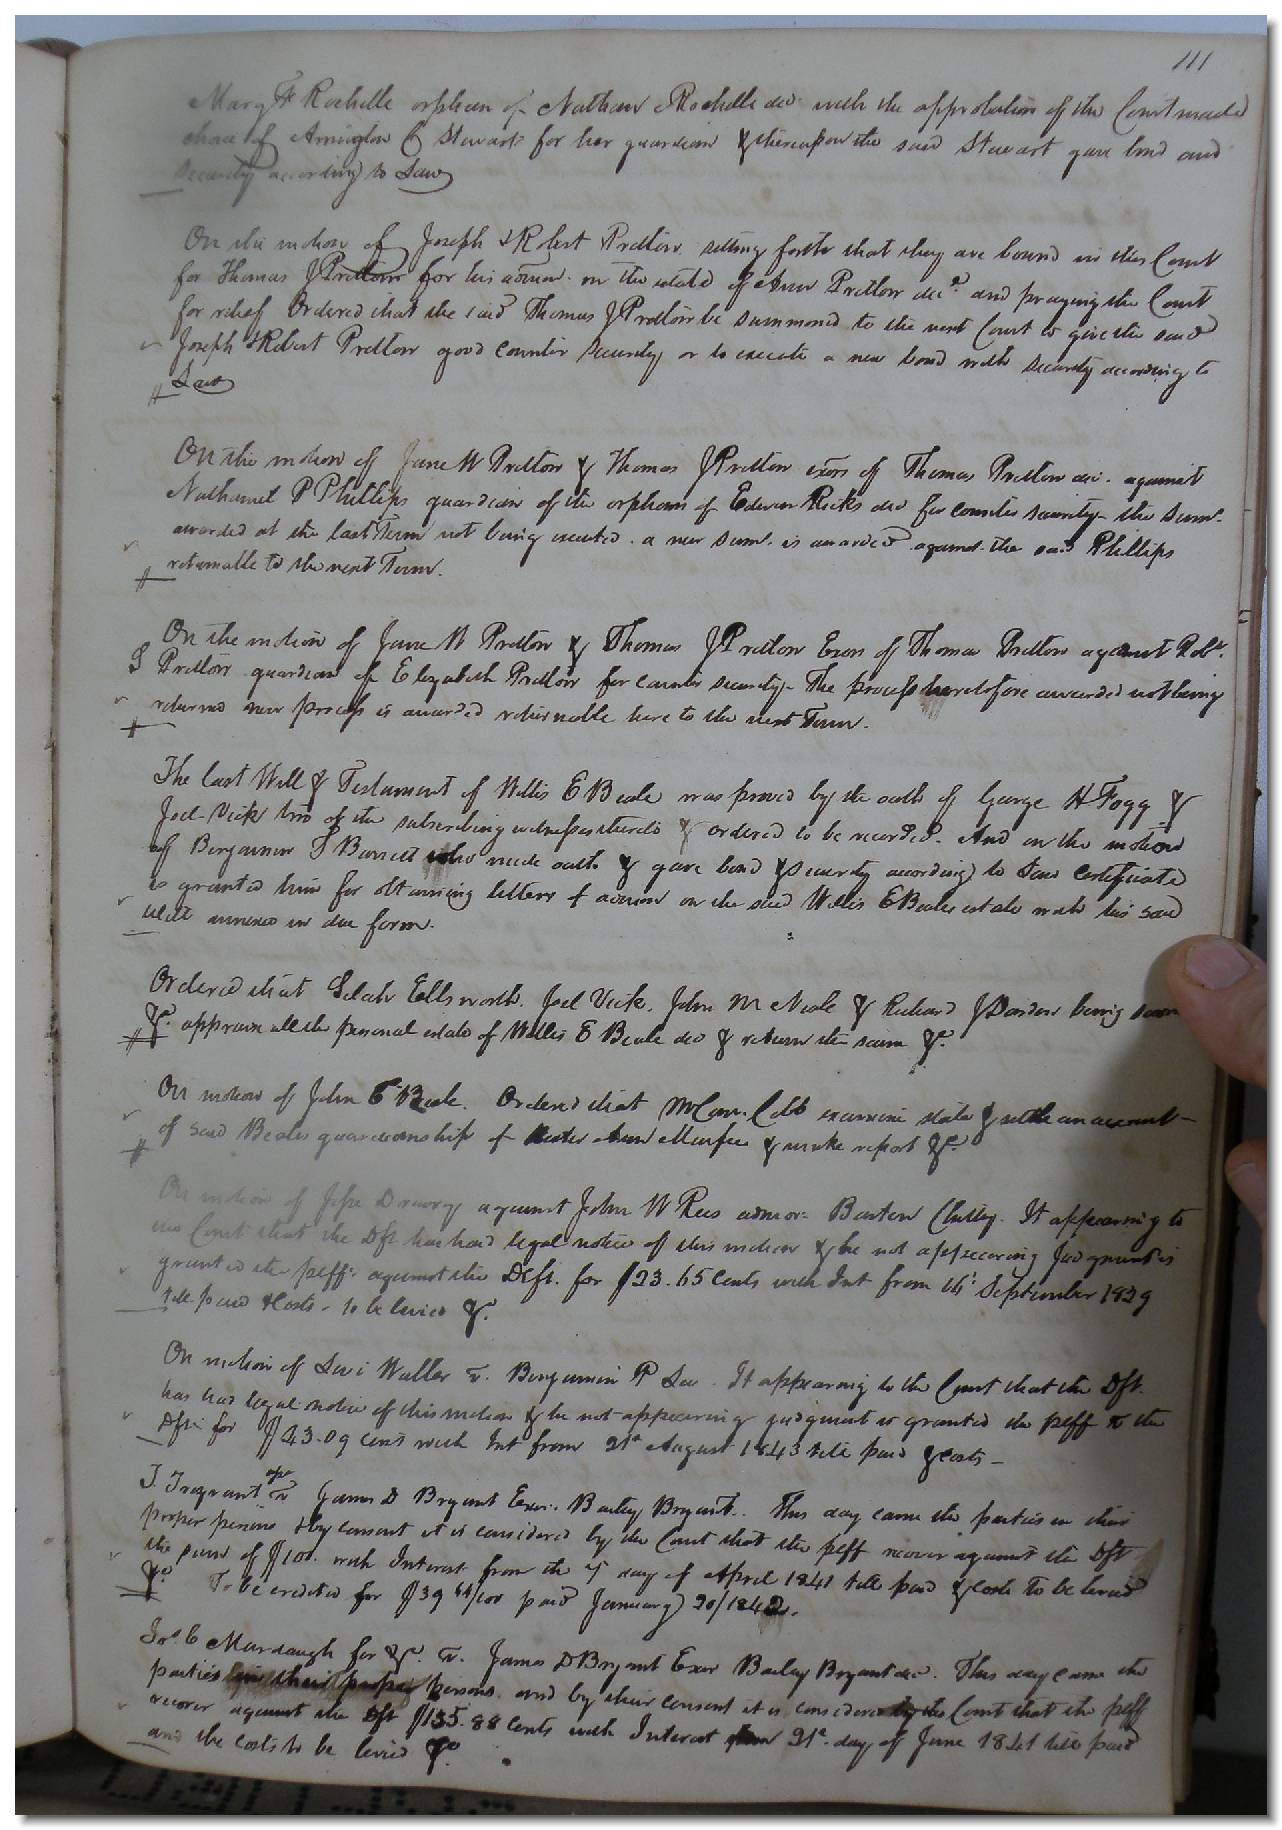 111
Mary F Rochelle orphan of Nathan Rochelle dec. with the approbation of the Court made
choice of Arrington C Stewart for her guardian & thereupon the said Stewart gave bond and
security according to Law
On the motion of Joseph & Robert Pretlow setting forth that they are bound in this Court
for Thomas J Pretlow for his admon. on the estate of Ann Pretlow decd. and praying the Court
for relief Ordered that the said Thomas J Pretlow be summoned to the next Court to give the said
Joseph & Robert Pretlow good counter security or to execute a new bond with security according to
Law
On the motion of Jane W Pretlow & Thomas J Pretlow exors of Thomas Pretlow dec. against
Nathaniel P Phillips guardian of the orphans of Edwin Ricks dec for counter security the sum.
awarded at the last Term not being executed. a new sum. is awarded against the said Phillips
returnable to the next Term.
On the motion of Jane W Pretlow & Thomas J Pretlow Exors of Thomas Pretlow against Robt.
S Pretlow guardian of Elizabeth Pretlow for counter security. The process heretofore awarded not being
returned new process is awarded returnable here to the next Term.
The last Will & Testament of Willis E Beale was proved by the oath of George H Fogg &
Joel Vick two of the subscribing witnesses thereto & ordered to be recorded. And on the motion
of Benjamin T Barrett who made oath & gave bond & security according to Law Certificate
is granted him for obtaining letters of admon on the said Willis E Beales estate with his said
will annexed in due form.
Ordered that Selah Ellsworth. Joel Vick. John M Neale & Richard J Darden being sworn
&c. appraise all the personal estate of Willis E Beale dec & return the same &c.
On motion of John E Beale. Ordered that Mr Com. Cobb examine state & settle an account
of said Beales guardianship of Ann Murfee & make report &c.
On motion of Jesse Drewry against John W Rees admor. Barton Chitty. It appearing to
the Court that the Dft has had legal notice of this motion & he not appearing Judgment is
granted the plff. against the Deft. for $23.65 cents with Int from 14 September 1839
till paid & costs. to be levied &c.
On motion of Levi Waller v. Benjamin P Lee. It appearing to the Court that the Dft.
has had legal notice of this motion & he not appearing judgment is granted the plff vs the
Dft. for $43.09 cents with Int from 21st August 1843 till paid & costs
T. Fragrant apee v James D Bryant Exor. Bailey Bryant. This day came the parties in their
proper persons & by consent it is considered by the Court that the plff recover against the Dft
the sum of $100. with Interest from the 7 day of April 1841 till paid & costs To be levied
&c To be credited for $39 64/100 paid January 20/1842.
Jos. C Murdaugh for &c. v. James D Bryant Exor Bailey Bryant dec. This day came the
parties in their proper persons. and by their consent it is considered by the Court that the plff
recover against the Dft $135.88 cents with Interest from 21st day of June 1841 till paid
and the costs to be levied &c